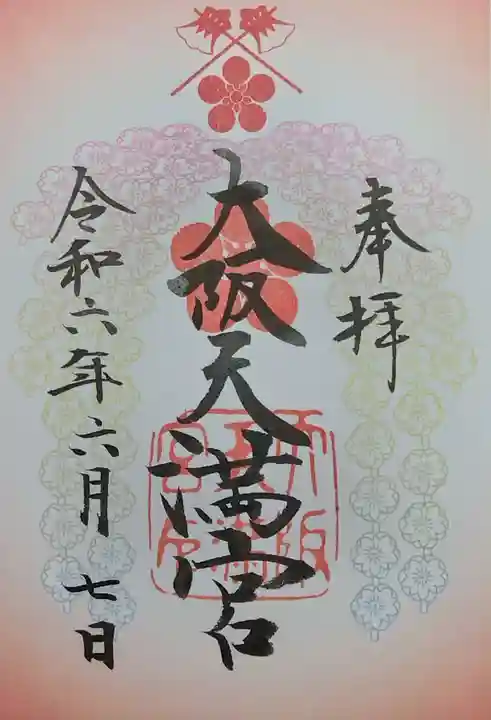 奉拝
大阪天満宮
令和六年六月七日